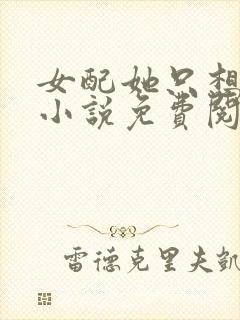 女配她只想
小說免費閱
雷德克里夫凱